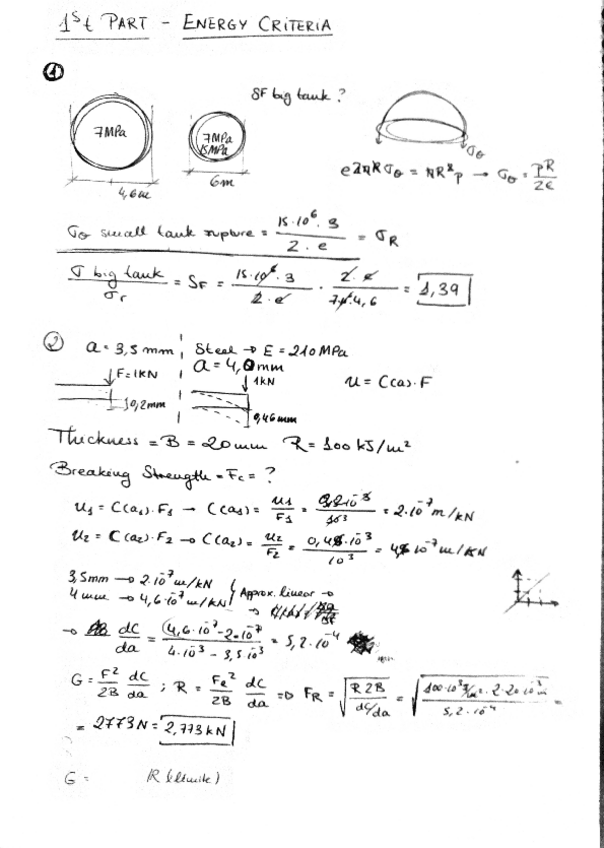 1st PART - ENERGY CRITERIA
①
SF big tank?
7MPa
7MPa
15MPa
4,6m
6m
σθ
e2πRσθ = πR²p → σθ = pR/2e
σθ small tank rupture = 15·10⁶·3 / 2·e = σR
σ big tank / σr = SF = 15·10⁶·3 / 2·e · 2·e / 7·10⁶·4,6 = 1,39
② a = 3,5mm | Steel → E = 210MPa
a = 4,0mm
F=1KN
1KN
u = C(a)·F
0,2mm
0,46mm
Thickness = B = 20mm R = 100 kJ/m²
Breaking Strength = Fc = ?
u1 = C(a1)·F1 → C(a1) = u1/F1 = 0,2·10⁻³ / 10³ = 2·10⁻⁷ m/KN
u2 = C(a2)·F2 → C(a2) = u2/F2 = 0,46·10⁻³ / 10³ = 4,6·10⁻⁷ m/KN
3,5mm → 2·10⁻⁷ m/KN
4mm → 4,6·10⁻⁷ m/KN
Approx. linear →
→ dC/da = (4,6·10⁻⁷ - 2·10⁻⁷) / 4·10⁻³ - 3,5·10⁻³ = 5,2·10⁻⁴
G = F²/2B dC/da ; R = FR²/2B dC/da => FR = √(R2B / dC/da) = √(100·10³ J/m²·2·20·10⁻³m / 5,2·10⁻⁴) =
= 2773N = 2,773KN
G = R (limite)